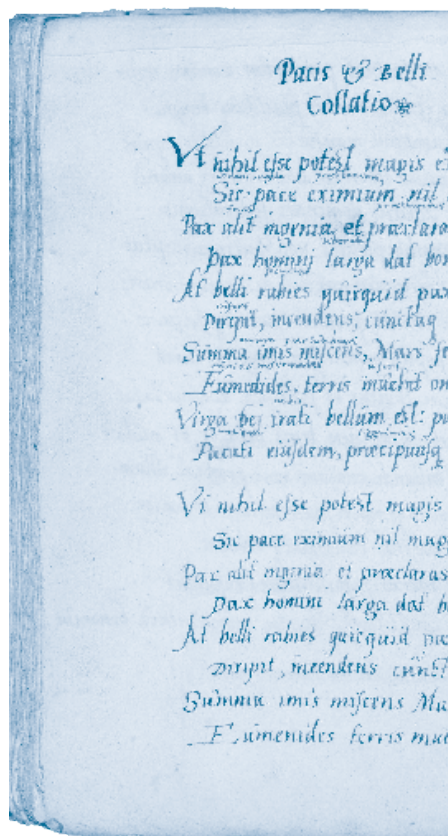 Pacis & Belli
Collatio
Ut nihil esse potest magis e
Sic pace eximium nil
Pax alit ingenia et præclara
Pax homini larga dat bon
At belli rabies quicquid pax
Diripit, incendens, cunctaq
Summa imis miscens, Mars fe
Eumedides. terris invehit om
Virga Dei irati bellum est: p
Pacati eiusdem, præcipuusq
Ut nihil esse potest magis
Sic pace eximium nil mag
Pax alit ingenia et præclaras
Pax homini larga dat b
At belli rabies quicquid pa
Diripit, incendens cunct
Summa imis miscens Ma
Eumenides terris